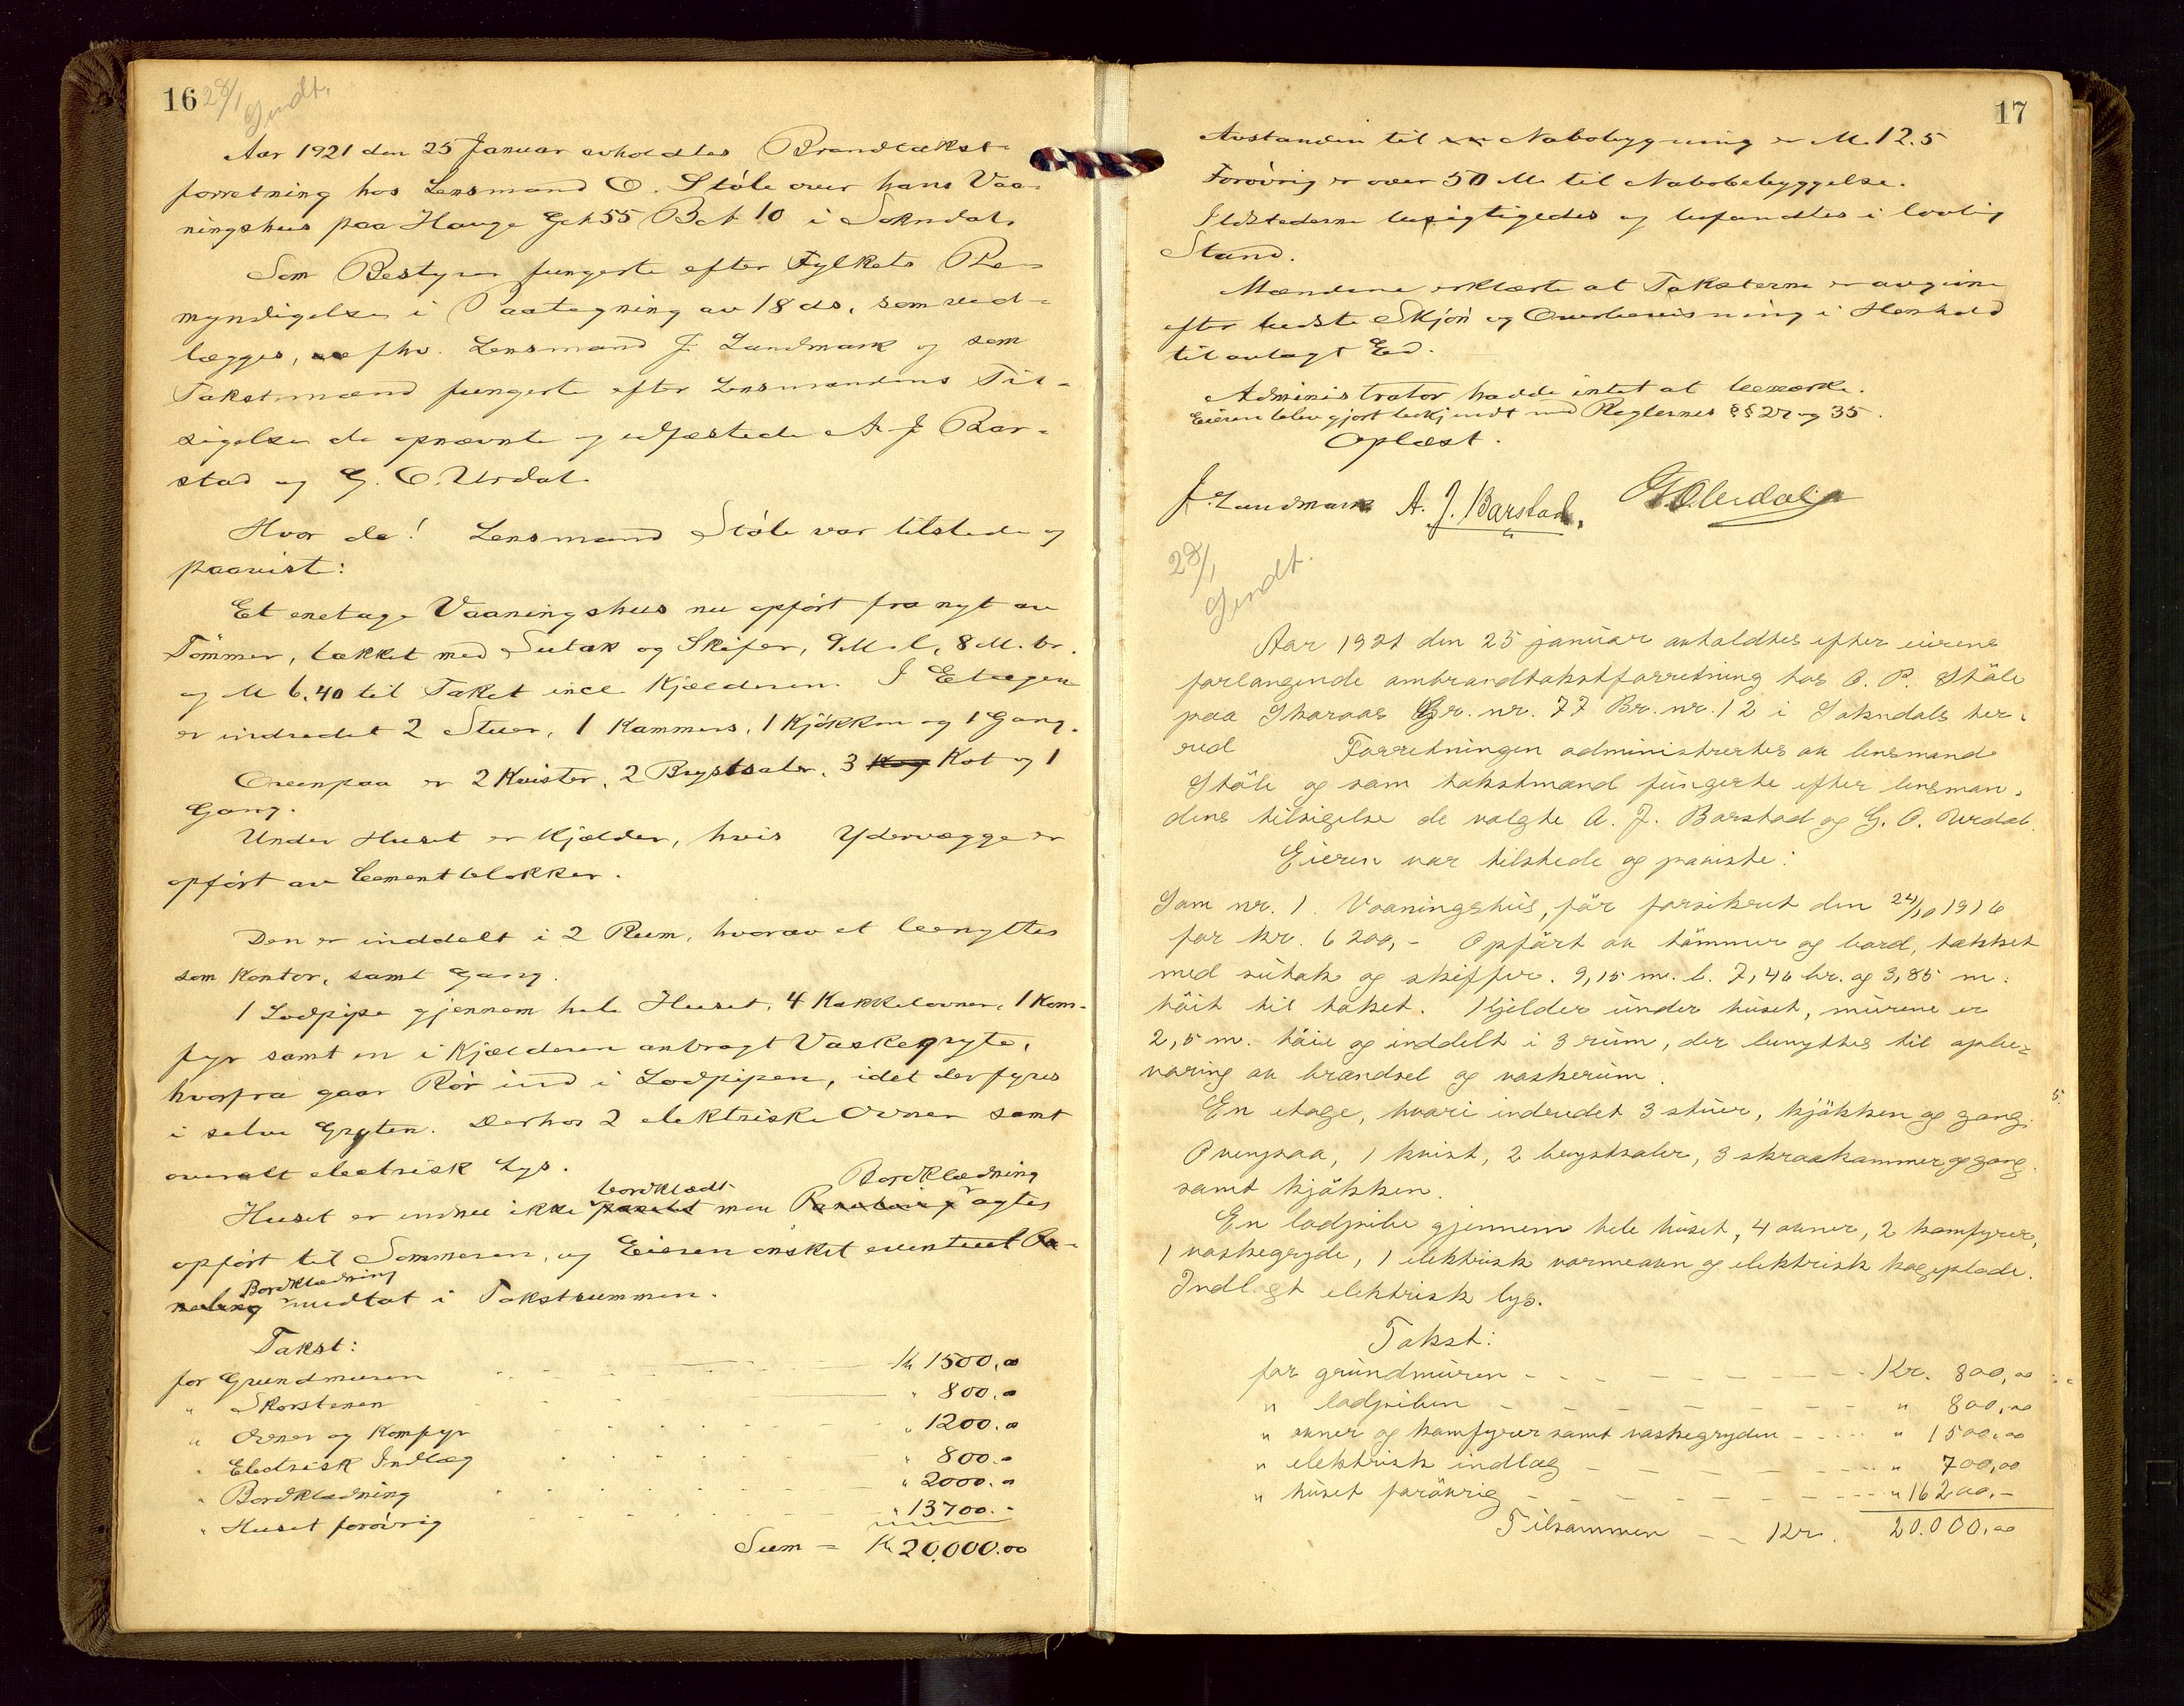 16
28/1
Sendt.
Aar 1921 den 25 Januar avholdtes Brandtakst-
forretning hos Lensmand O. Ståle over hans Vaa-
ningshus paa Hauge Gt 55 Bt 10 i Sokndal.
Som Bestyrer fungerte efter Fylkets Be-
myndigelse i Paategning av 18 ds. som ved-
lægges, fhv. Lensmand J. Landmark og som
Takstmænd fungerte efter Lensmandens Til-
sigelse de opnævnte og edfæstede A. J. Bar-
stad og G. O. Urdal.
Hvor da! Lensmand Ståle var tilstede og
paaviste:
Et enetage Vaaningshus nu opført fra nyt av
Tømmer, tækket med Sutak og Skifer, 9 M. l, 8 M. br.
og M 6.40 til Taket incl Kjælderen. I Etagen
er indredet 2 Stuer, 1 Kammers, 1 Kjøkken og 1 Gang.
Ovenpaa er 2 Kvister, 2 Brystsaler, 3 Kot og 1
Gang.
Under Huset er Kjælder, hvis Ydervægge er
opført av Cementblokker.
Den er inddelt i 2 Rum, hvorav et benyttes
som Kontor, samt Gang.
1 Lodpipe gjennem hele Huset, 4 Kakkelovner, 1 Kom-
fyr samt en i Kjælderen anbragt Vaskegryte,
hvorfra gaar Rør ind i Lodpipen, idet der fyres
i selve Gryten. Derhos 2 elektriske Ovner samt
overalt electrisk Lys.
Huset er endnu ikke bordklædt men Bordklædning agtes
opført til Sommeren, og Eieren ønsket eventuel
Bordklædning medtat i Takstsummen.
Takst:
for Grundmuren Kr 1500.00
" Skorstenen " 800.00
" Ovner og Komfyr " 1200.00
" Electrisk Indlæg " 800.00
" Bordklædning " 2000.00
" Huset forøvrig " 13700.-
Sum = Kr 20.000.00
17
Avstanden til Nabobygning er M. 12.5
Forøvrig er over 50 M til Nabobebyggelse.
Ildstederne besigtigedes og befandtes i lovlig
Stand.
Mændene erklærte at Taksterne er avgivne
efter bedste Skjøn og Overbevisning i Henhold
til avlagt Ed.
Administrator hadde intet at bemærke.
Eieren blev gjort bekjendt med Reglernes §§ 27 og 35.
Oplæst.
J. Landmark A. J. Barstad. G. O. Urdal
28/1
Sendt.
Aar 1921 den 25 januar avholdtes efter eierens
forlangende ombrandtakstforretning hos O. P. Ståle
paa Skaraas Gr. nr. 77 Br. nr. 12 i Sokndals her-
red Forretningen administrertes av lensmand
Ståle og som takstmænd fungerte efter lensman-
dens tilsigelse de valgte A. J. Barstad og G. O. Urdal.
Eieren var tilstede og paviste:
Som nr. 1. Vaaningshus, før forsikret den 24/10 1916
for kr. 6200,- Opført av tømmer og bord, tækket
med sutak og skiffer. 9,15 m. l. 7,40 br. og 3,85 m.
høit til taket. Kjelder under huset, murene er
2,5 m. høie og inddelt i 3 rum, der benyttes til opbe-
varing av brændsel og vaskerum.
En etage, hvori indredet 3 stuer, kjøkken og gang. 5.
Ovenpaa, 1 kvist, 2 brystsaler, 3 skraakammer og gang.
samt kjøkken.
En lodpibe gjennem hele huset, 4 ovner, 2 komfyrer,
1 vaskegryde, 1 elektrisk varmeovn og elektrisk kogeplade.
Indlagt elektrisk lys.
Takst:
for grundmuren Kr. 800,00
" lodpiben " 800,00
" ovner og komfyrer samt vaskegryden " 1500,00
" elektrisk indlæg " 700,00
" huset forøvrig " 16200,-
Tilsammen Kr. 20.000,00